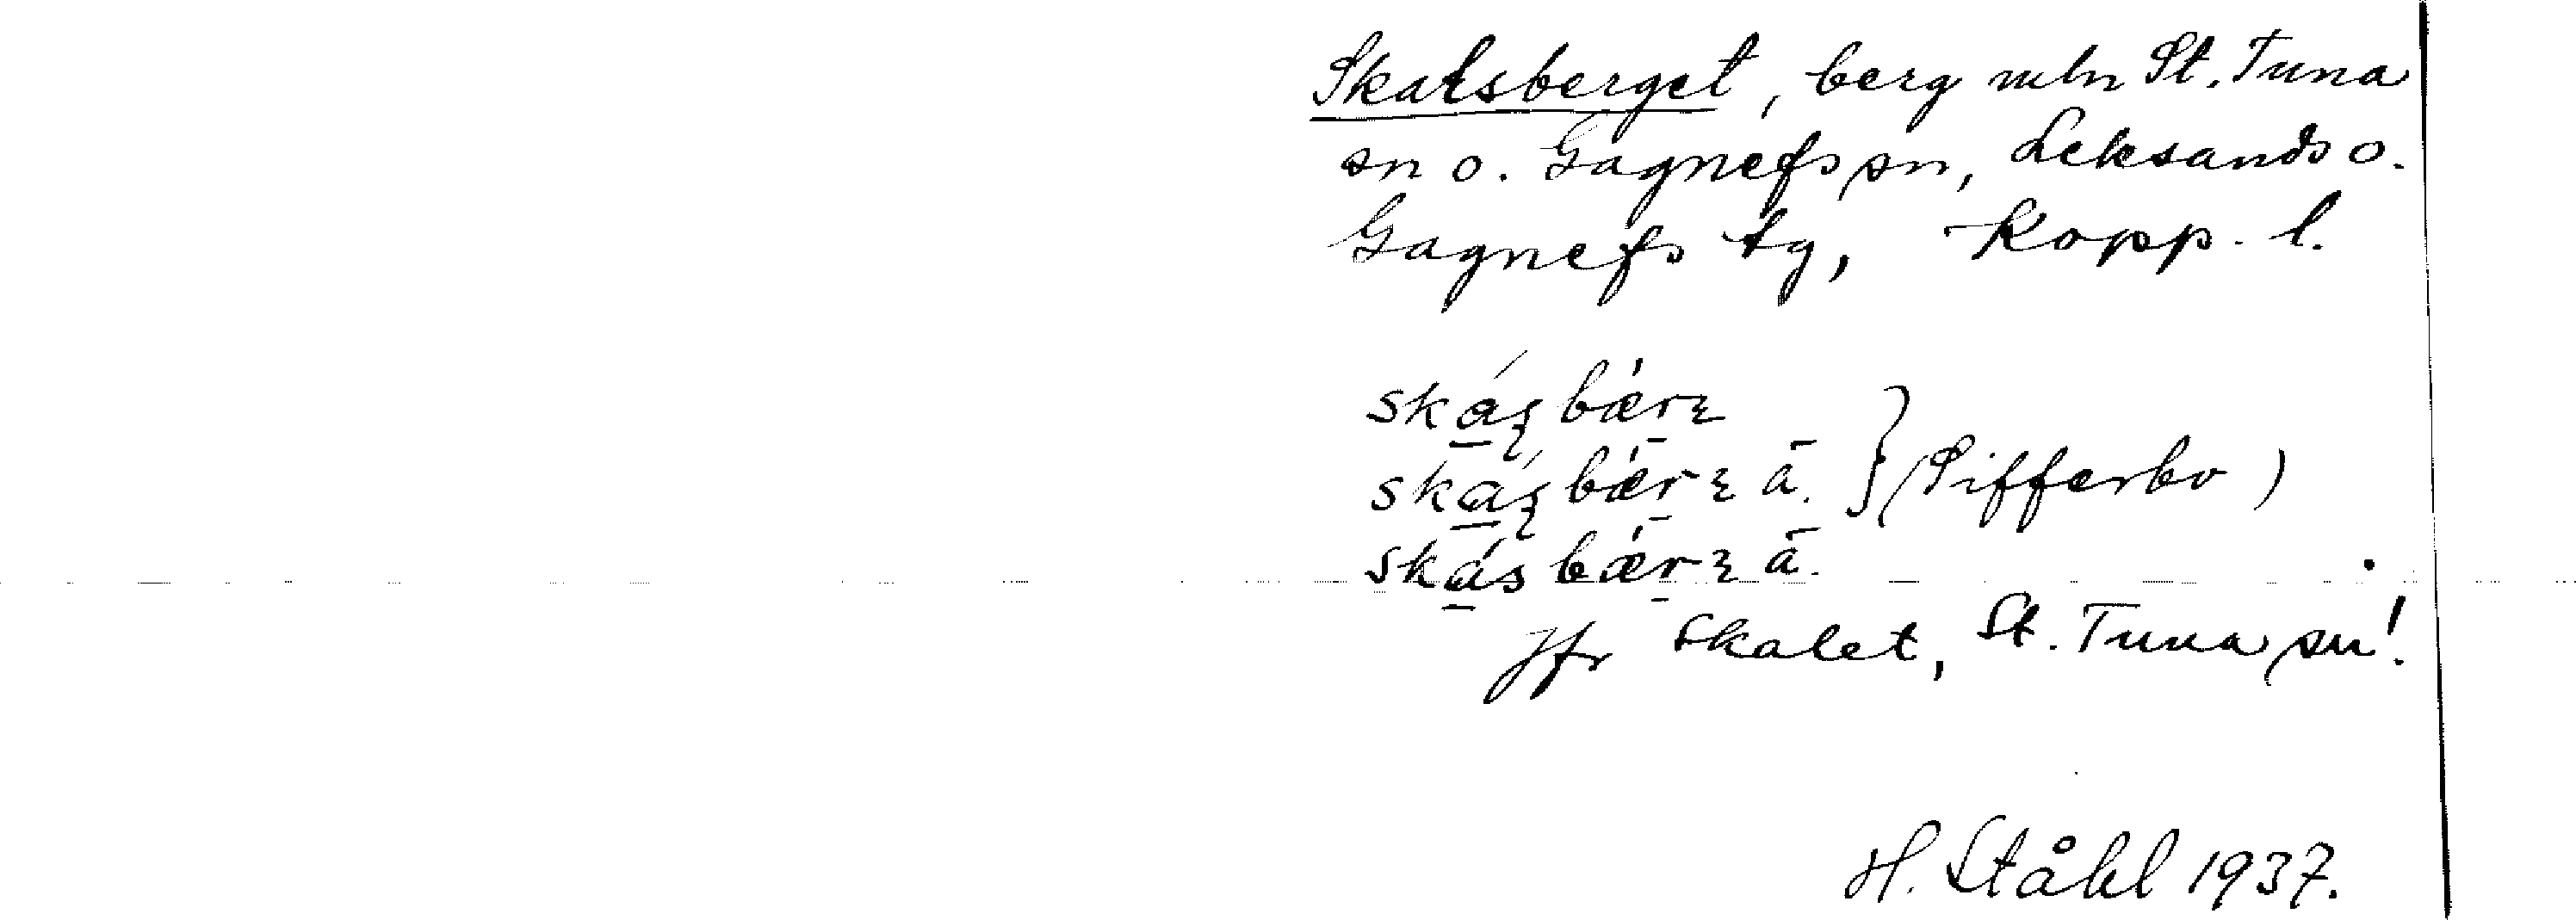 Skalsberget, berg mln St. Tuna
sn o. Gagnefs sn, Leksands o.
Gagnefs tg, Kopp. l.
(Sifferbo)
Jfr Skalet, St. Tuna sn!
H. Ståhl 1937.